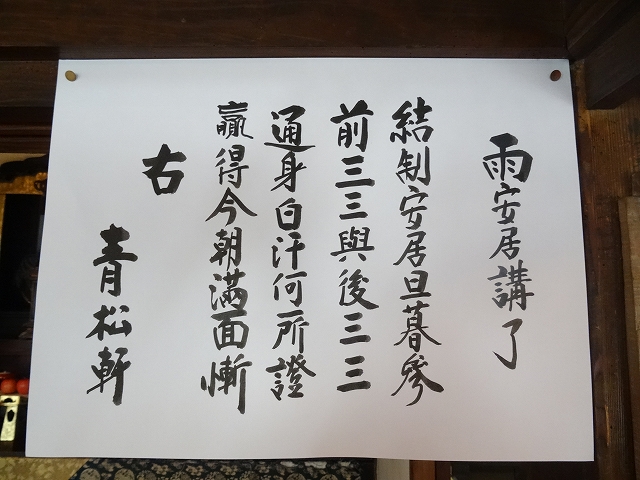 雨安居講了
結制安居旦暮參
前三三與後三三
通身白汗何所證
贏得今朝滿面慚
右
青松軒